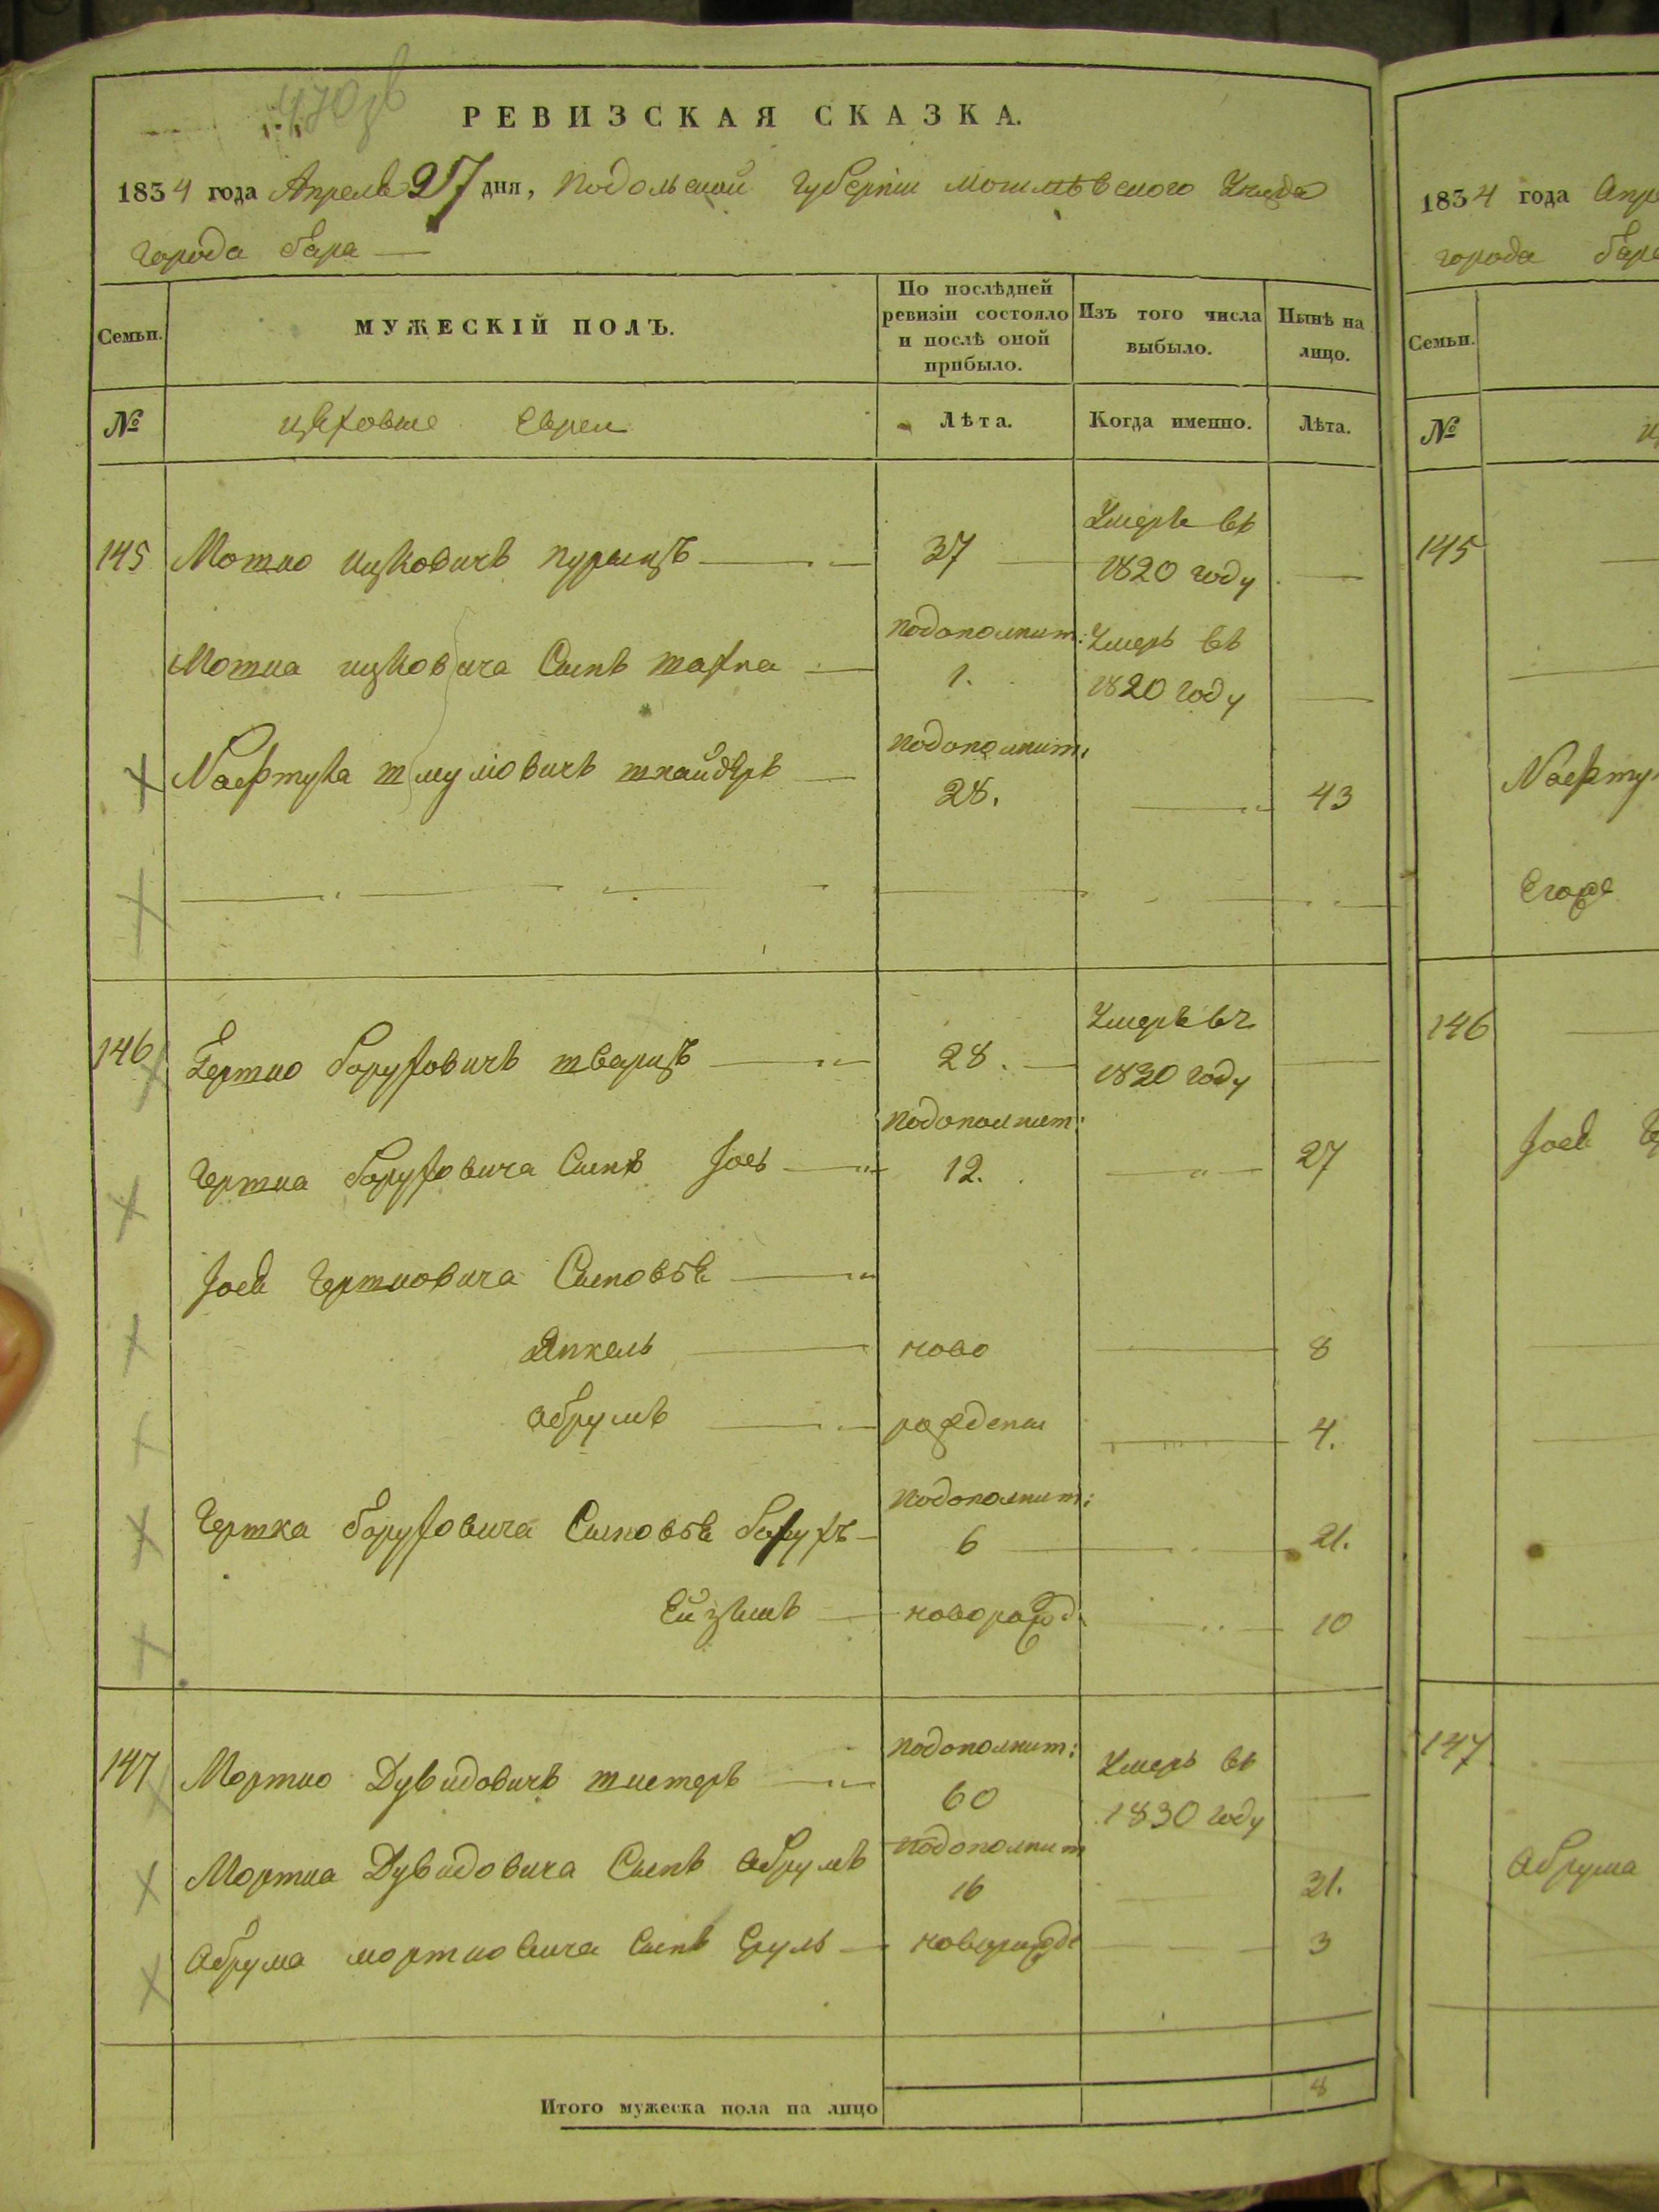 470 зв
РЕВИЗСКАЯ СКАЗКА.
1834 года Апреля 27 дня, Подольской Губерніи Могилевского Уезда
города Бара —
Семьи.
МУЖЕСКІЙ ПОЛЪ.
По послѣдней ревизіи состояло и послѣ оной прибыло.
Изъ того числа выбыло.
Нынѣ на лицо.
№ цеховые Евреи Лѣта. Когда именно. Лѣта.
145 Мотио Ицковичъ 37 Умеръ въ 1820 году —
Мотиа ицковича Сынъ подополнит: 1. Умеръ въ 1820 году —
Нафтула Шмулиовичъ шнайдеръ подополнит: 28. — 43
146 Гершко Боруховичъ шварцъ 28. Умеръ въ 1830 году —
Гершка Боруховича Сынъ Іось подополнит: 12. — 27
Іося Гершковича Сыновья
Янкель ново — 8
Абрумъ рожденни — 4.
Гершка Боруховича Сыновья Борухъ подополнит: 6 — 21.
новорожд. — 10
147 Мортко Дувидовичъ подополнит: 60 Умеръ въ 1830 году —
Мортка Дувидовича Сынъ Абрумъ подополнит 16 — 31.
Абрума мортковича Сынъ Сруль новорожде — 3
Итого мужеска пола на лицо 8
1834 года Апре
города Баре
Семьи.
№
145
Нафту
Егоже
146
Іося
147
Абрума